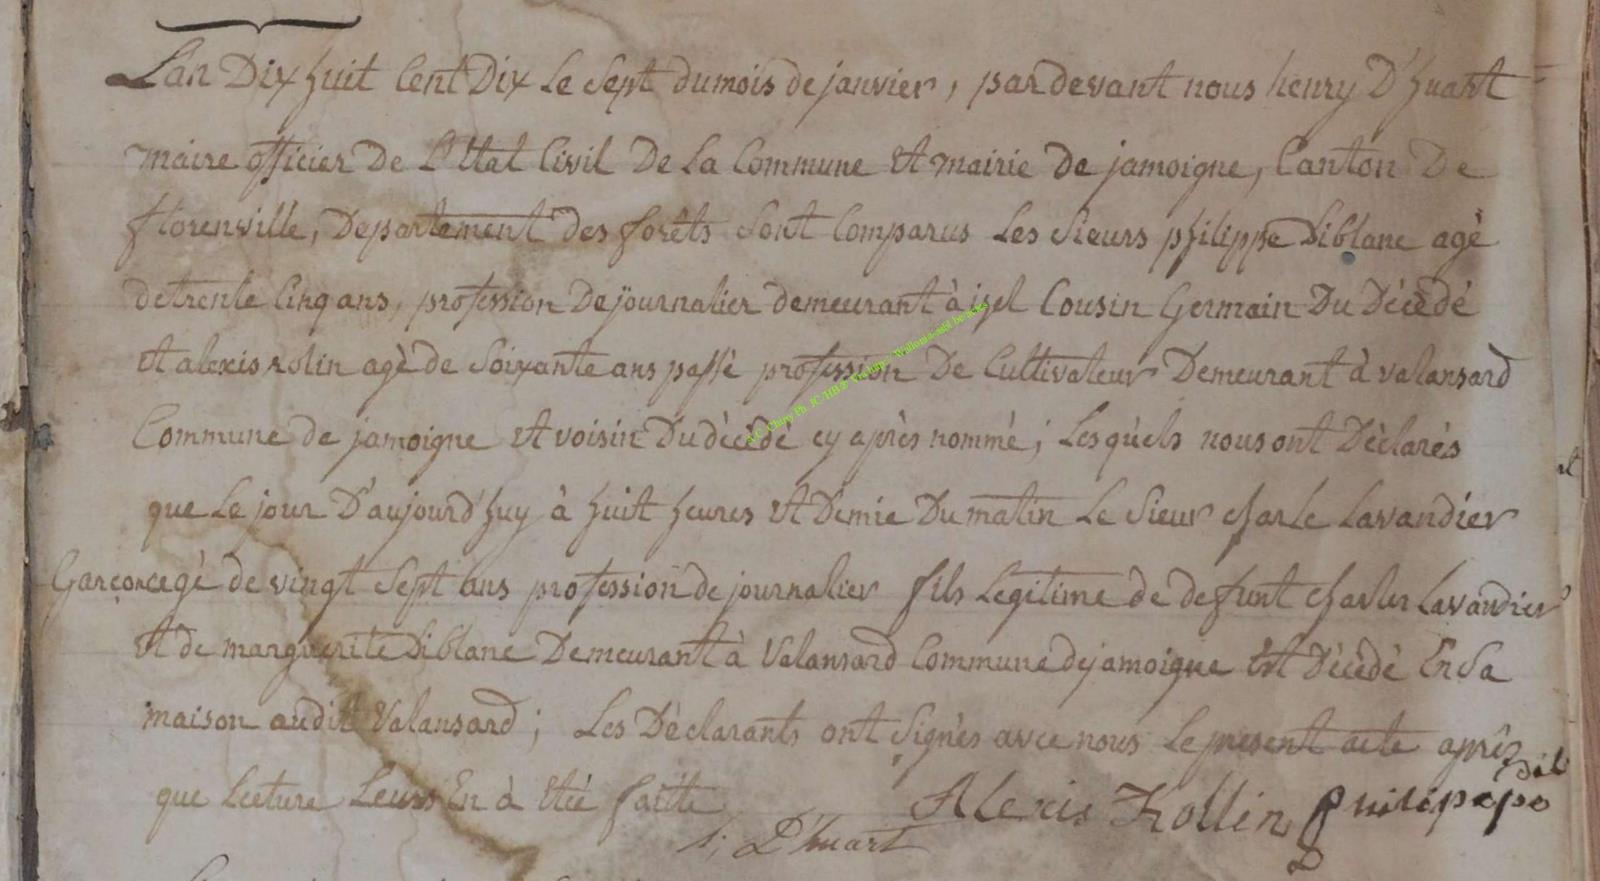 L'an Dix huit Cent Dix Le Sept du mois de janvier, par devant nous henry D'huart
maire officier De L'Etat Civil De La Commune Et mairie de jamoigne, Canton De
florenville, Departement des forêts Sont Comparus Les Sieurs philippe Diblanc agé
de trente Cinq ans, profession De journalier demeurant à izel Cousin Germain Du Décédé
Et alexis rolin agè de Soixante ans passé profession De Cultivateur Demeurant à valansard
Commune de jamoigne Et voisin Du dècèdé cy après nommé; Lesquels nous ont Dèclarés
que Le jour D'aujourd'huy à huit heures Et Demie Du matin Le Sieur charle Lavandier
Garçon agé de vingt Sept ans profession de journalier fils Legitime de defunt charles Lavandier
Et de marguerite Diblanc Demeurant à Valansard Commune de jamoigne Est Dècèdè En Sa
maison audit Valansard; Les Dèclarants ont Signès avec nous Le present acte après
que Lecture Leurs En à Etée faitte
Alexis Rollin philippe
D'huart